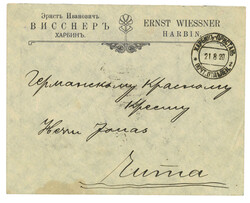 Эрнстъ Ивановичъ
ВИССНЕРЪ
ХАРБИНЪ.
ERNST WIESSNER
HARBIN.
ХАРБИНЪ-ПРИСТАНЬ
21 8 20
Германскому Красному
Кресту
Herrn Jonas
Чита